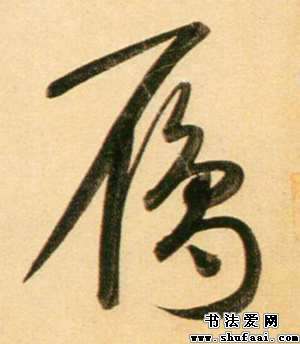 鴈
书法爱网
www.shufaai.com